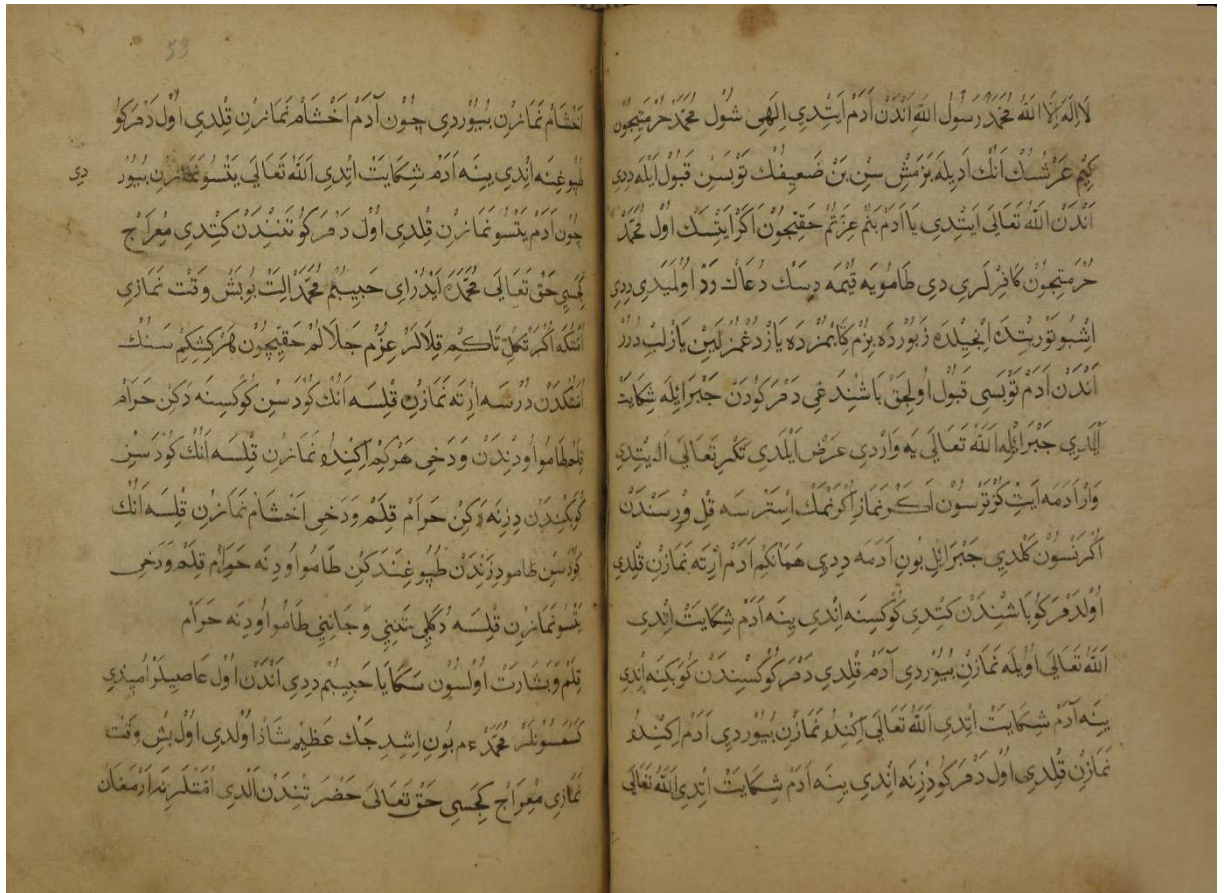 لَا اِلَهَ اِلَّا اللّٰهُ مُحَمَّدٌ رَسُولُ اللّٰهِ اَنْدَنْ اٰدَمْ اَيْتدِي اِلَهِي شُولْ مُحَمَّدْ حُرْمَتِيچُونْ
كِيمْ عَرْشُڭْ اَنُڭْ اَدِيلَه بَزَمِشْ سِنْ بَنْ ضَعِيفُڭْ تَوْبَسِنْ قَبُولْ اَيْلَه دِدِي
اَنْدَنْ اَللّٰهُ تَعَالَى اَيْتدِي يَا اٰدَمْ بَنُمْ عِزَّتُمْ حَقِيچُونْ اَكَرْ اَيْتسَڭْ اُولْ مُحَمَّدْ
حُرْمَتِيچُونْ كَافِرْلَرِي دِي طَامُويَه قُيْمَه دِسَڭْ دُعَاڭْ رَدْ اُولْمَيَدِي دِدِي
اِشْبُو تَوْرِيتدَه اِنْجِيلْدَه زَبُورْدَه بِزُمْ كِتَابُمُزْدَه يَازْدُغُمُزْ لَيِنْ يَازْلُبْ دُرُرْ
اَنْدَنْ اٰدَمْ تَوْبَسِي قَبُولْ اُولِجَقْ بَاشِنْدَغِي دَمْرَكُودَنْ جَبْرَائِلَه شِكَايَتْ
اَيْلَدِي جَبْرَائِلْ اَللّٰهُ تَعَالَى يَه وَارْدِي عَرْضْ اَيْلَدِي تَكْرِ تَعَالَى اَيْتدِي
وَارْ اٰدَمَه اَيْتْ كَوْتَرْسُونْ اَكَرْ نَمَازْ اِكْرَنْمَكْ اِسْتَرْسَه قِلْ وِرِسَنْدَنْ
اَكْرَنْسُونْ كَلْدِي جَبْرَائِلْ بُونِ اٰدَمَه دِدِي هَمَانْكِمْ اٰدَمْ اِرْتَه نَمَازِنْ قِلْدِي
اُولْ دَمْرَكُو بَاشِنْدَنْ كِتدِي كُوكْسِنَه اِنْدِي يِنَه اٰدَمْ شِكَايَتْ اِتدِي
اَللّٰهُ تَعَالَى اُويْلَه نَمَازِنْ بُيُوردِي اٰدَمْ قِلْدِي دَمْرَكُو كُوكْسِنْدَنْ كُوبَكِنَه اِنْدِي
يِنَه اٰدَمْ شِكَايَتْ اِتدِي اَللّٰهُ تَعَالَى اِكِنْدُو نَمَازِنْ بُيُوردِي اٰدَمْ اِكِنْدُو
نَمَازِنْ قِلْدِي اُولْ دَمْرَكُو دِزِنَه اِنْدِي يِنَه اٰدَمْ شِكَايَتْ اِتدِي اَللّٰهُ تَعَالَى
53
اَخْشَامْ نَمَازِنْ بُيُوردِي چُونْ اٰدَمْ اَخْشَامْ نَمَازِنْ قِلْدِي اُولْ دَمْرَكُو
طُپُوغِنَه اِنْدِي يِنَه اٰدَمْ شِكَايَتْ اِتدِي اَللّٰهُ تَعَالَى يَتْسُو نَمَازِنْ بُيُورْ دِي
چُونْ اٰدَمْ يَتْسُو نَمَازِنْ قِلْدِي اُولْ دَمْرَكُو تَنِنْدَنْ كِتدِي مِعْرَاجْ
كِجَسِي حَقْ تَعَالَى مُحَمَّدَه اَيْدُرْ اَيْ حَبِيبُمْ مُحَمَّدْ اِلَتْ بُو بَشْ وَقْتْ نَمَازِي
اُمَّتُكَه اَكْرَتْكِلْ تَاكِمْ قِلَالَرْ عِزُّمْ جَلَالُمْ حَقِيچُونْ هَرْ كِشِكِمْ سَنُڭْ
اُمَّتُكْدَنْ دُرْسَه اِرْتَه نَمَازِنْ قِلْسَه اَنُڭْ كَوْدَسِنْ كُوكْسِنَه دَكِنْ حَرَامْ
قِلَمْ طَامُو اُودِنْدَنْ وَدَخِي هَرْكِمْ اِكِنْدُو نَمَازِنْ قِلْسَه اَنُڭْ كَوْدَسِنْ
كُوبَكِنْدَنْ دِزِنَه دَكِنْ حَرَامْ قِلَمْ وَدَخِي اَخْشَامْ نَمَازِنْ قِلْسَه اَنُڭْ
كَوْدَسِنْ طَامُو دِزِنْدَنْ طُپُوغِنَدَكِنْ طَامُو اُودِنَه حَرَامْ قِلَمْ وَدَخِي
يَتْسُو نَمَازِنْ قِلْسَه دُكَلِي تَنِنِي وَجَانِنِي طَامُو اُودِنَه حَرَامْ
قِلَمْ وَبَشَارَتْ اُولْسُونْ سَكَا يَا حَبِيبُمْ دِدِي اَنْدَنْ اُولْ عَاصِيلَرْ اُمِيذِي
كَسْمَسُونْلَرْ مُحَمَّدْ ءم بُونِ اِشِدِجَكْ عَظِيمْ شَاذْ اُولْدِي اُولْ بَشْ وَقْتْ
نَمَازِي مِعْرَاجْ كِجَسِي حَقْ تَعَالَى حَضْرَتِنْدَنْ اَلْدِي اُمَّتْلَرِنَه اَرْمَغَانْ